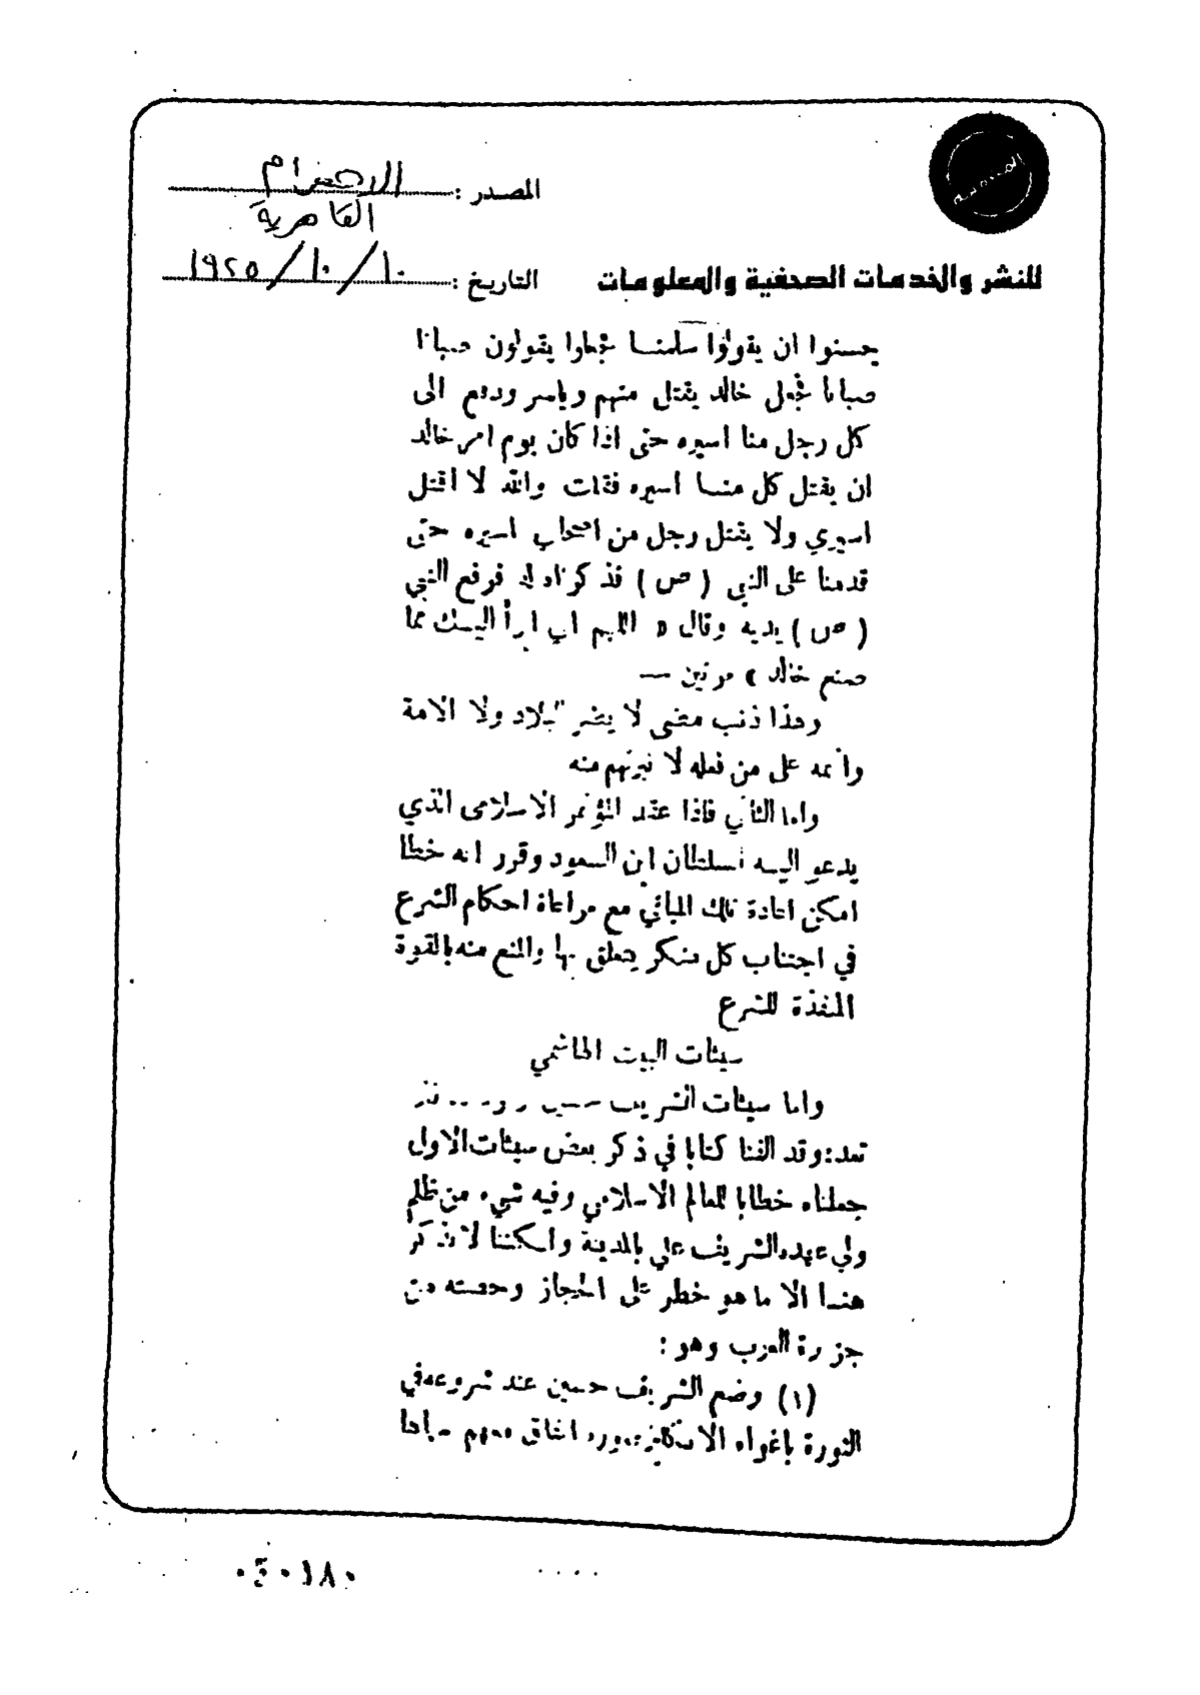 المصدر : الاهرام
القاهرية
التاريخ : ١٠/١٠/١٩٢٥
للنشر والخدمات الصحفية والمعلومات
يحسنوا ان يقولوا سلمنا فجعلوا يقولون صبانا
صبانا فجعل خالد يقتل منهم وياسر ودفع الى
كل رجل منا اسيره حتى اذا كان يوم امر خالد
ان يقتل كل منا اسيره فقلت والله لا اقتل
اسيري ولا يقتل رجل من اصحابي اسيره حتى
قدمنا على النبي ( ص ) فذكرناه له فرفع النبي
( ص ) يديه وقال « اللهم اني ابرأ اليك مما
صنع خالد » مرتين —
وهذا ذنب مضى لا يضر البلاد ولا الامة
واثمه على من فعله لا نبرئهم منه
واما الثاني فاذا عقد المؤتمر الاسلامى الذي
يدعو اليه السلطان ابن السعود وقرر انه خطا
امكن اعادة تلك المباني مع مراعاة احكام الشرع
في اجتناب كل منكر يتعلق بها والمنع منه بالقوة
المنفذة للشرع
سيئات البيت الهاشمي
واما سيئات الشريف حسين
تعد : وقد الفنا كتابا في ذكر بعض سيئات الاول
جعلناه خطابا للعالم الاسلامي وفيه شيء من ظلم
ولي عهده الشريف علي بالمدينة ولكننا لا نذكر
هنا الا ما هو خطر على الحجاز وحصته من
جزيرة العرب وهو :
(١) وضع الشريف حسين عند شروعه في
الثورة باغواء الانكليز اتفاق معهم